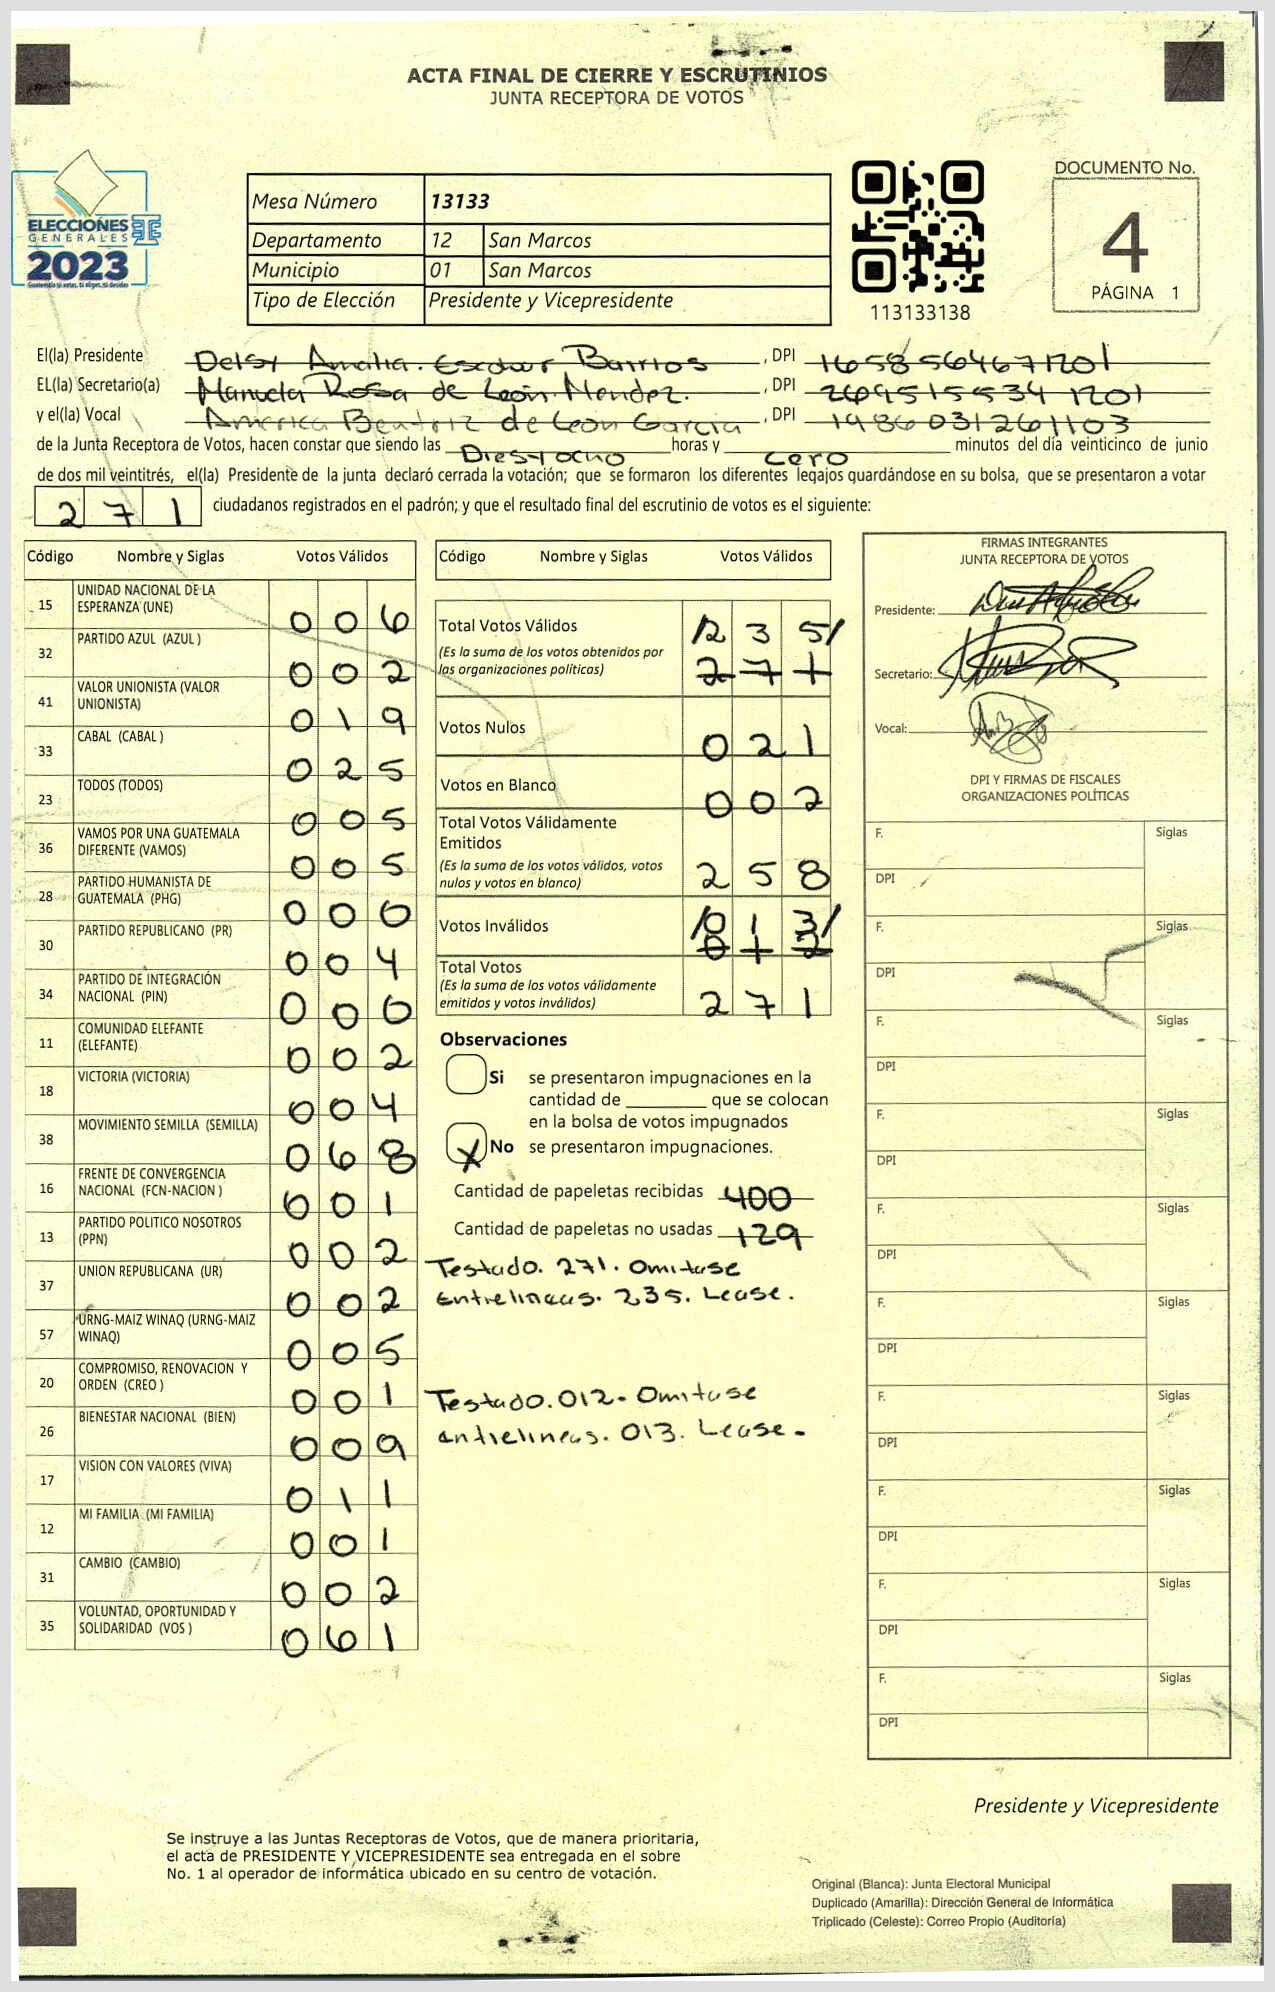 ACTA FINAL DE CIERRE Y ESCRUTINIOS
JUNTA RECEPTORA DE VOTOS
ELECCIONES
GENERALES
2023
Guatemala tú votas, tú eliges, tú decides
Mesa Número 13133
Departamento 12 San Marcos
Municipio 01 San Marcos
Tipo de Elección Presidente y Vicepresidente
113133138
DOCUMENTO No.
4
PÁGINA 1
El(la) Presidente Delsy Amalia Escobar Barrios , DPI 1658564671201
EL(la) Secretario(a) Manuela Rosa de León Mendez. , DPI 2695155341201
y el(la) Vocal America Beatriz de León Garcia , DPI 1986031261103
de la Junta Receptora de Votos, hacen constar que siendo las Diesyocho horas y cero minutos del día veinticinco de junio
de dos mil veintitrés, el(la) Presidente de la junta declaró cerrada la votación; que se formaron los diferentes legajos guardándose en su bolsa, que se presentaron a votar
271 ciudadanos registrados en el padrón; y que el resultado final del escrutinio de votos es el siguiente:
Código Nombre y Siglas Votos Válidos
15 UNIDAD NACIONAL DE LA ESPERANZA (UNE) 006
32 PARTIDO AZUL (AZUL ) 002
41 VALOR UNIONISTA (VALOR UNIONISTA) 019
33 CABAL (CABAL ) 025
23 TODOS (TODOS) 005
36 VAMOS POR UNA GUATEMALA DIFERENTE (VAMOS) 005
28 PARTIDO HUMANISTA DE GUATEMALA (PHG) 000
30 PARTIDO REPUBLICANO (PR) 004
34 PARTIDO DE INTEGRACIÓN NACIONAL (PIN) 000
11 COMUNIDAD ELEFANTE (ELEFANTE) 002
18 VICTORIA (VICTORIA) 004
38 MOVIMIENTO SEMILLA (SEMILLA) 068
16 FRENTE DE CONVERGENCIA NACIONAL (FCN-NACION ) 001
13 PARTIDO POLITICO NOSOTROS (PPN) 002
37 UNION REPUBLICANA (UR) 002
57 URNG-MAIZ WINAQ (URNG-MAIZ WINAQ) 005
20 COMPROMISO, RENOVACION Y ORDEN (CREO ) 001
26 BIENESTAR NACIONAL (BIEN) 009
17 VISION CON VALORES (VIVA) 011
12 MI FAMILIA (MI FAMILIA) 001
31 CAMBIO (CAMBIO) 002
35 VOLUNTAD, OPORTUNIDAD Y SOLIDARIDAD (VOS ) 061
Código Nombre y Siglas Votos Válidos
Total Votos Válidos /235/
(Es la suma de los votos obtenidos por
las organizaciones políticas) 271
Votos Nulos 021
Votos en Blanco 002
Total Votos Válidamente
Emitidos
(Es la suma de los votos válidos, votos
nulos y votos en blanco) 258
Votos Inválidos /013/
012
Total Votos
(Es la suma de los votos válidamente
emitidos y votos inválidos) 271
Observaciones
Si se presentaron impugnaciones en la
cantidad de ________ que se colocan
en la bolsa de votos impugnados
X No se presentaron impugnaciones.
Cantidad de papeletas recibidas 400
Cantidad de papeletas no usadas 129
Testado. 271. Omitase
Entrelineas. 235. Lease.
Testado. 012- Omitase
entrelineas. 013. Lease-
FIRMAS INTEGRANTES
JUNTA RECEPTORA DE VOTOS
Presidente:
Secretario:
Vocal:
DPI Y FIRMAS DE FISCALES
ORGANIZACIONES POLÍTICAS
F. Siglas
DPI
F. Siglas
DPI
F. Siglas
DPI
F. Siglas
DPI
F. Siglas
DPI
F. Siglas
DPI
F. Siglas
DPI
F. Siglas
DPI
F. Siglas
DPI
F. Siglas
DPI
Presidente y Vicepresidente
Se instruye a las Juntas Receptoras de Votos, que de manera prioritaria,
el acta de PRESIDENTE Y VICEPRESIDENTE sea entregada en el sobre
No. 1 al operador de informática ubicado en su centro de votación.
Original (Blanca): Junta Electoral Municipal
Duplicado (Amarilla): Dirección General de Informática
Triplicado (Celeste): Correo Propio (Auditoría)